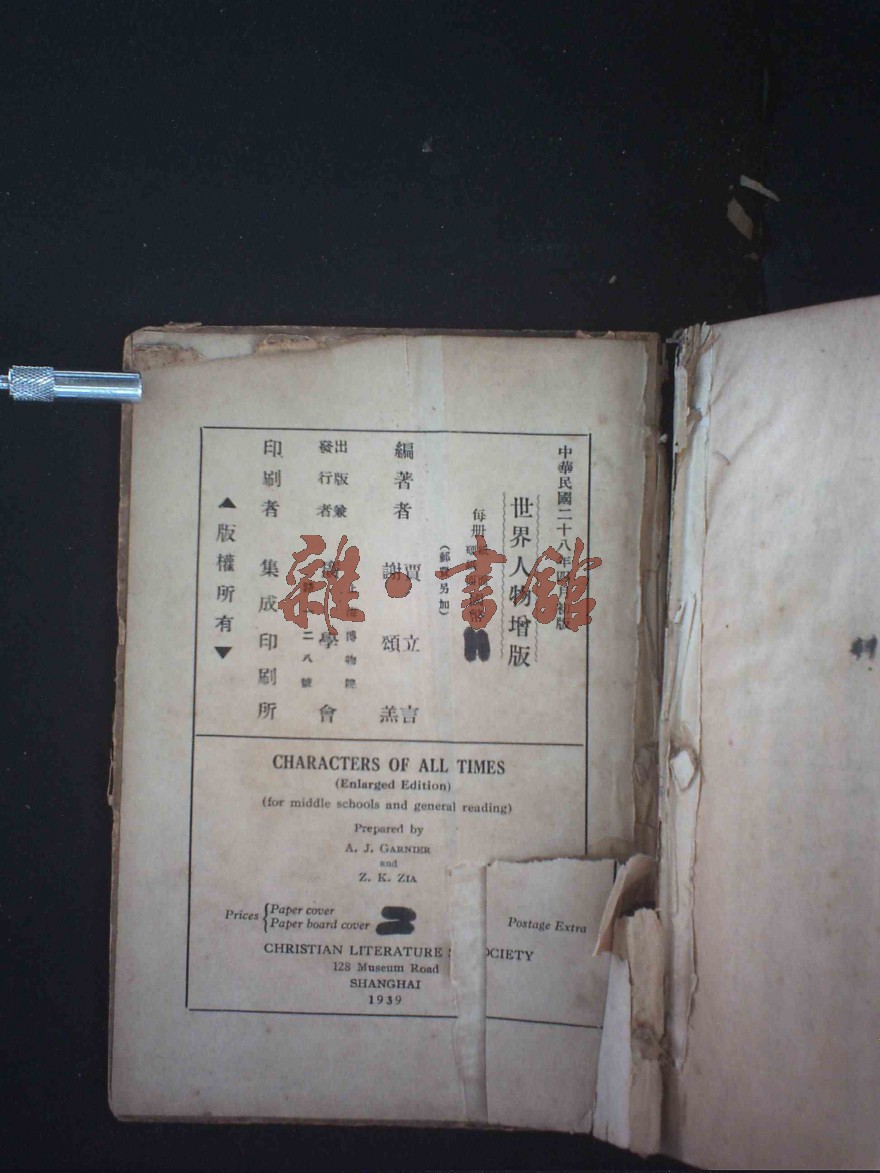 中華民國二十八年四月初版
世界人物增版
每册
(郵費另加)
編著者 賈立言 謝頌羔
出版兼發行者 上海博物院路一二八號 廣學會
印刷者 集成印刷所
▲版權所有▼
雜·書館
CHARACTERS OF ALL TIMES
(Enlarged Edition)
(for middle schools and general reading)
Prepared by
A. J. GARNIER
and
Z. K. ZIA
Prices { Paper cover
Paper board cover
Postage Extra
CHRISTIAN LITERATURE SOCIETY
128 Museum Road
SHANGHAI
1939